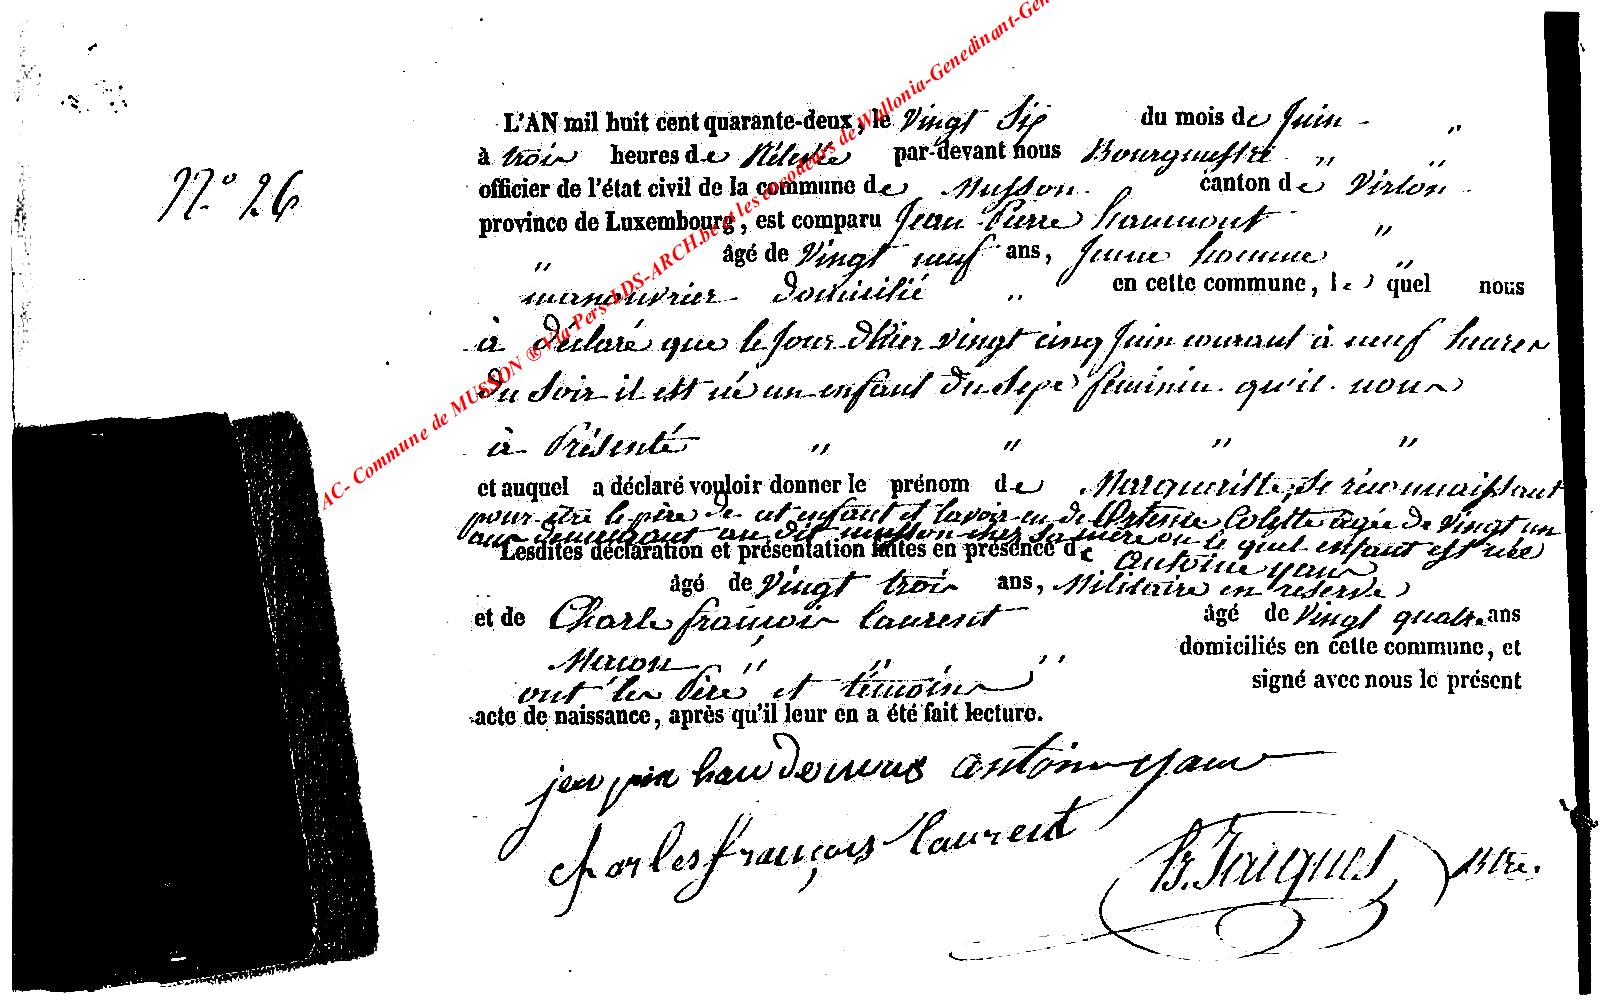 AC- Commune de MUSSON ® via Pers-LDS-ARCH.be et les encodeurs de Wallonia-Genedinant-Gen
L'AN mil huit cent quarante-deux, le vingt Six du mois de Juin "
à trois heures de Rélevée par-devant nous Bourgmestre " "
N° 26
officier de l'état civil de la commune de Musson canton de Virton
province de Luxembourg, est comparu Jean Pierre "
" âgé de vingt neuf ans, Jeune homme "
manouvrier domicilié " en cette commune, le quel nous
à déclaré que le Jour d'hier vingt cinq Juin courant à neuf heures
du Soir il est né un enfant du Sexe féminin qu'il nous
à Présenté " " " "
et auquel a déclaré vouloir donner le prénom de Margueritte, Se réconnaissant
pour être le père de cet enfant et l'avoir eu de Ostensie Colette agée de vingt un
ans demeurant au dit musson chez sa mère ou le quel enfant est née
Lesdites déclaration et présentation faites en présence de Antoine yans
âgé de vingt trois ans, Militaire en réserve
et de Charle françois laurent âgé de vingt quatre ans
Macon " " " domiciliés en cette commune, et
ont les Père et témoins signé avec nous le présent
acte de naissance, après qu'il leur en a été fait lecture.
antoine yans
charles françois laurent
B. Jaques Btre.